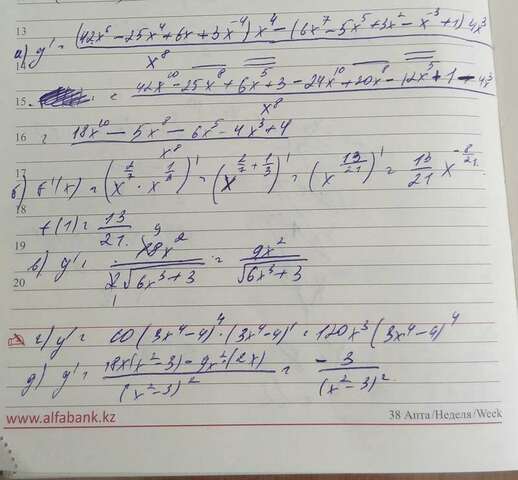 13
а) y' = ((42x⁶ - 25x⁴ + 6x + 3x⁻⁴) x⁴ - (6x⁷ - 5x⁵ + 3x² - x⁻³ + 1) 4x³) / x⁸
14
15 = (42x¹⁰ - 25x⁸ + 6x⁵ + 3 - 24x¹⁰ + 20x⁸ - 12x⁵ + 1 - 4x³) / x⁸
16 = (18x¹⁰ - 5x⁸ - 6x⁵ - 4x³ + 4) / x⁸
17
б) f'(x) = (x^(2/7) · x^(1/3))' = (x^(2/7 + 1/3))' = (x^(13/21))' = 13/21 x^(-8/21).
18
f(1) = 13/21.
19
в) y' = 18x² / 2√(6x³+3) = 9x² / √(6x³+3)
20
г) y' = 10 (3x⁴-4)⁴ · (3x⁴-4)' = 120x³ (3x⁴-4)⁴
д) y' = (18x(x²-3) - 9x²·(2x)) / (x²-3)² = -3 / (x²-3)².
www.alfabank.kz
38 Апта/Неделя/Week